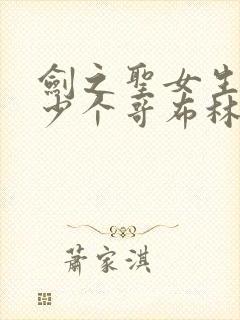 劍之聖女生
少个哥布林
蕭家淇